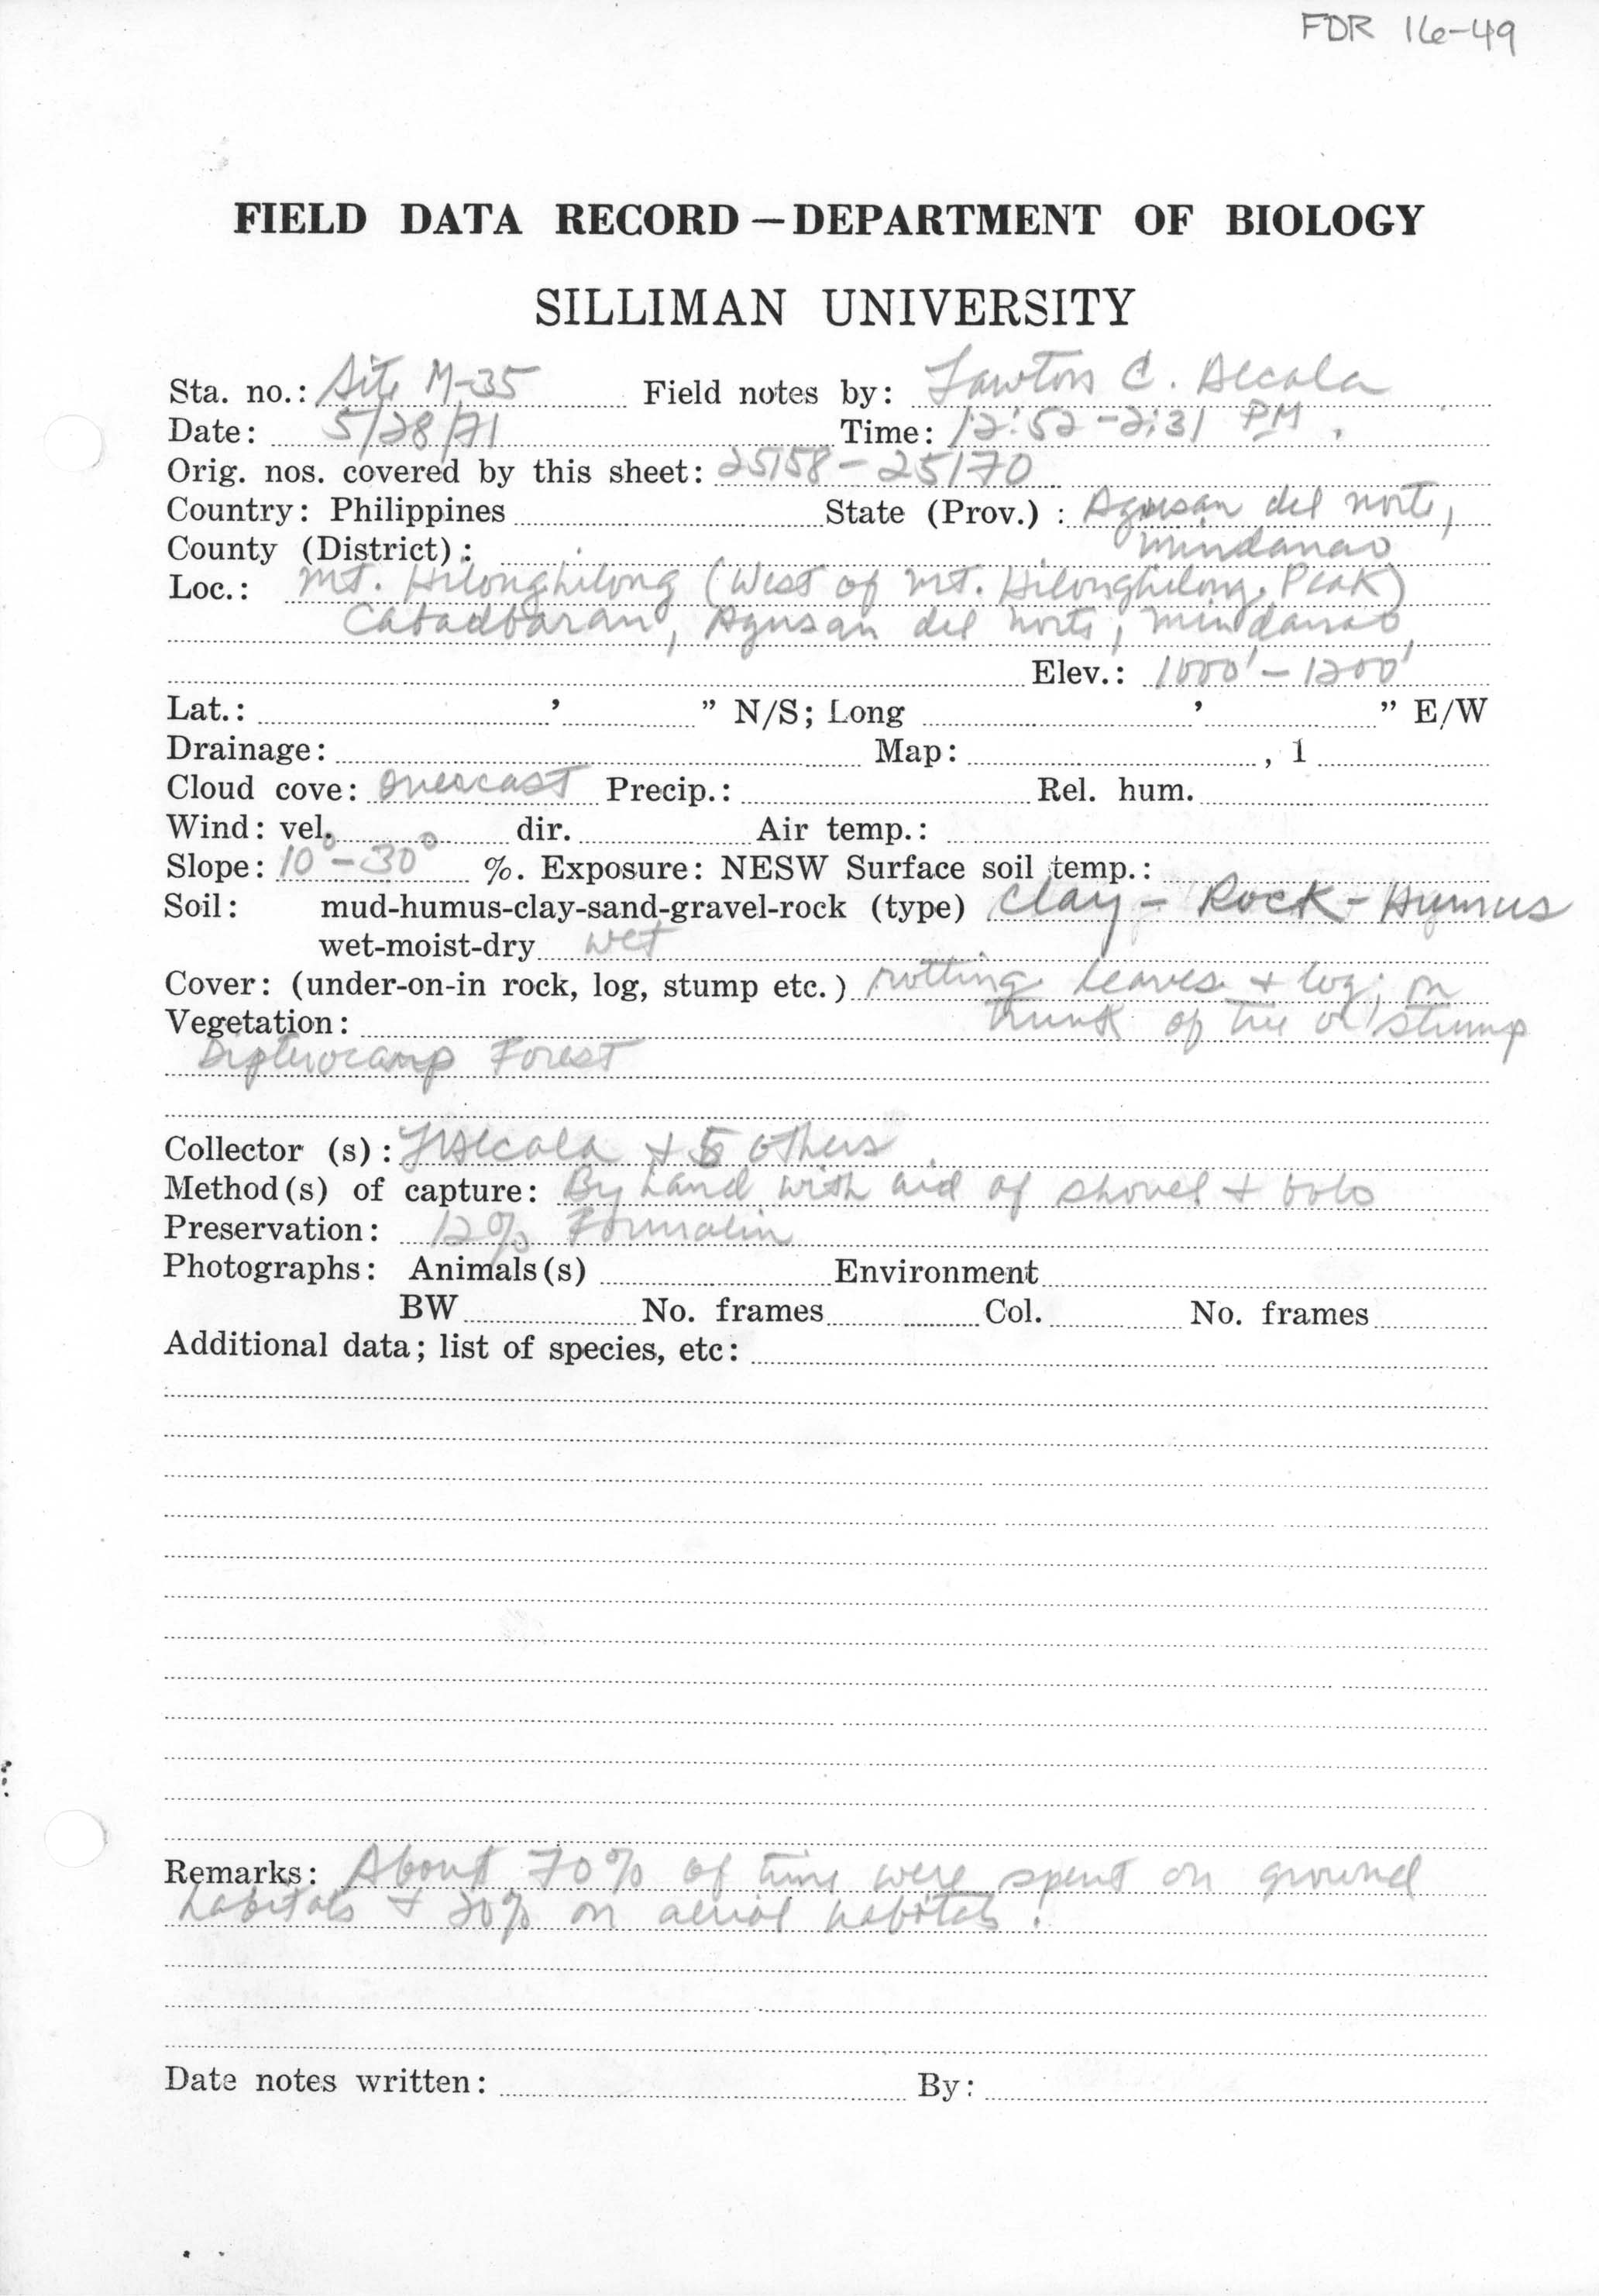 FDR 16-49
FIELD DATA RECORD — DEPARTMENT OF BIOLOGY
SILLIMAN UNIVERSITY
Sta. no.: Site M-35 Field notes by: Lawton C. Alcala
Date: 5/28/71 Time: 12:52-2:31 PM.
Orig. nos. covered by this sheet: 25158 - 25170
Country: Philippines State (Prov.) : Agusan del norte,
County (District): Mindanao
Loc.: Mt. Hilonghilong (West of Mt. Hilonghilong Peak)
Cabadbaran, Agusan del norte, Mindanao
Elev.: 1000' - 1200'
Lat.: ' " N/S; Long ' " E/W
Drainage: Map: , 1
Cloud cove: overcast Precip.: Rel. hum.
Wind: vel. dir. Air temp.:
Slope: 10° - 30° %. Exposure: NESW Surface soil temp.:
Soil: mud-humus-clay-sand-gravel-rock (type) Clay - Rock - Humus
wet-moist-dry wet
Cover: (under-on-in rock, log, stump etc.) rotting leaves + log; on
Vegetation: trunk of tree or stump
Dipterocarp Forest
Collector (s): LAlcala + 5 others
Method(s) of capture: By hand with aid of shovel + bolo
Preservation: 12% Formalin
Photographs: Animals(s) Environment
BW No. frames Col. No. frames
Additional data; list of species, etc:
Remarks: About 70% of time were spent on ground
habitats + 30% on aerial habitats.
Date notes written: By: